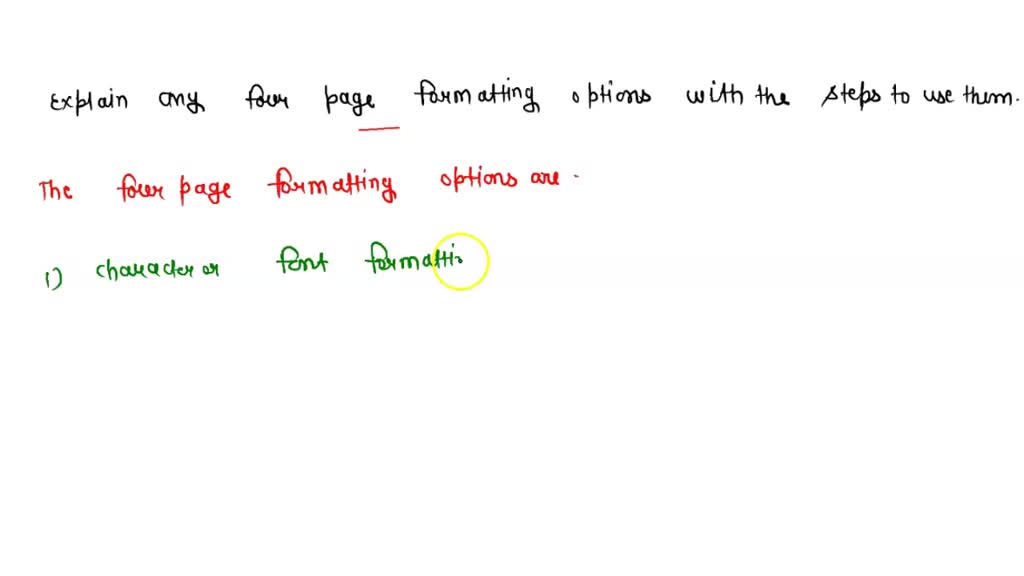 Explain any four page formatting options with the steps to use them.
The four page formatting options are.
1) character or font formattin